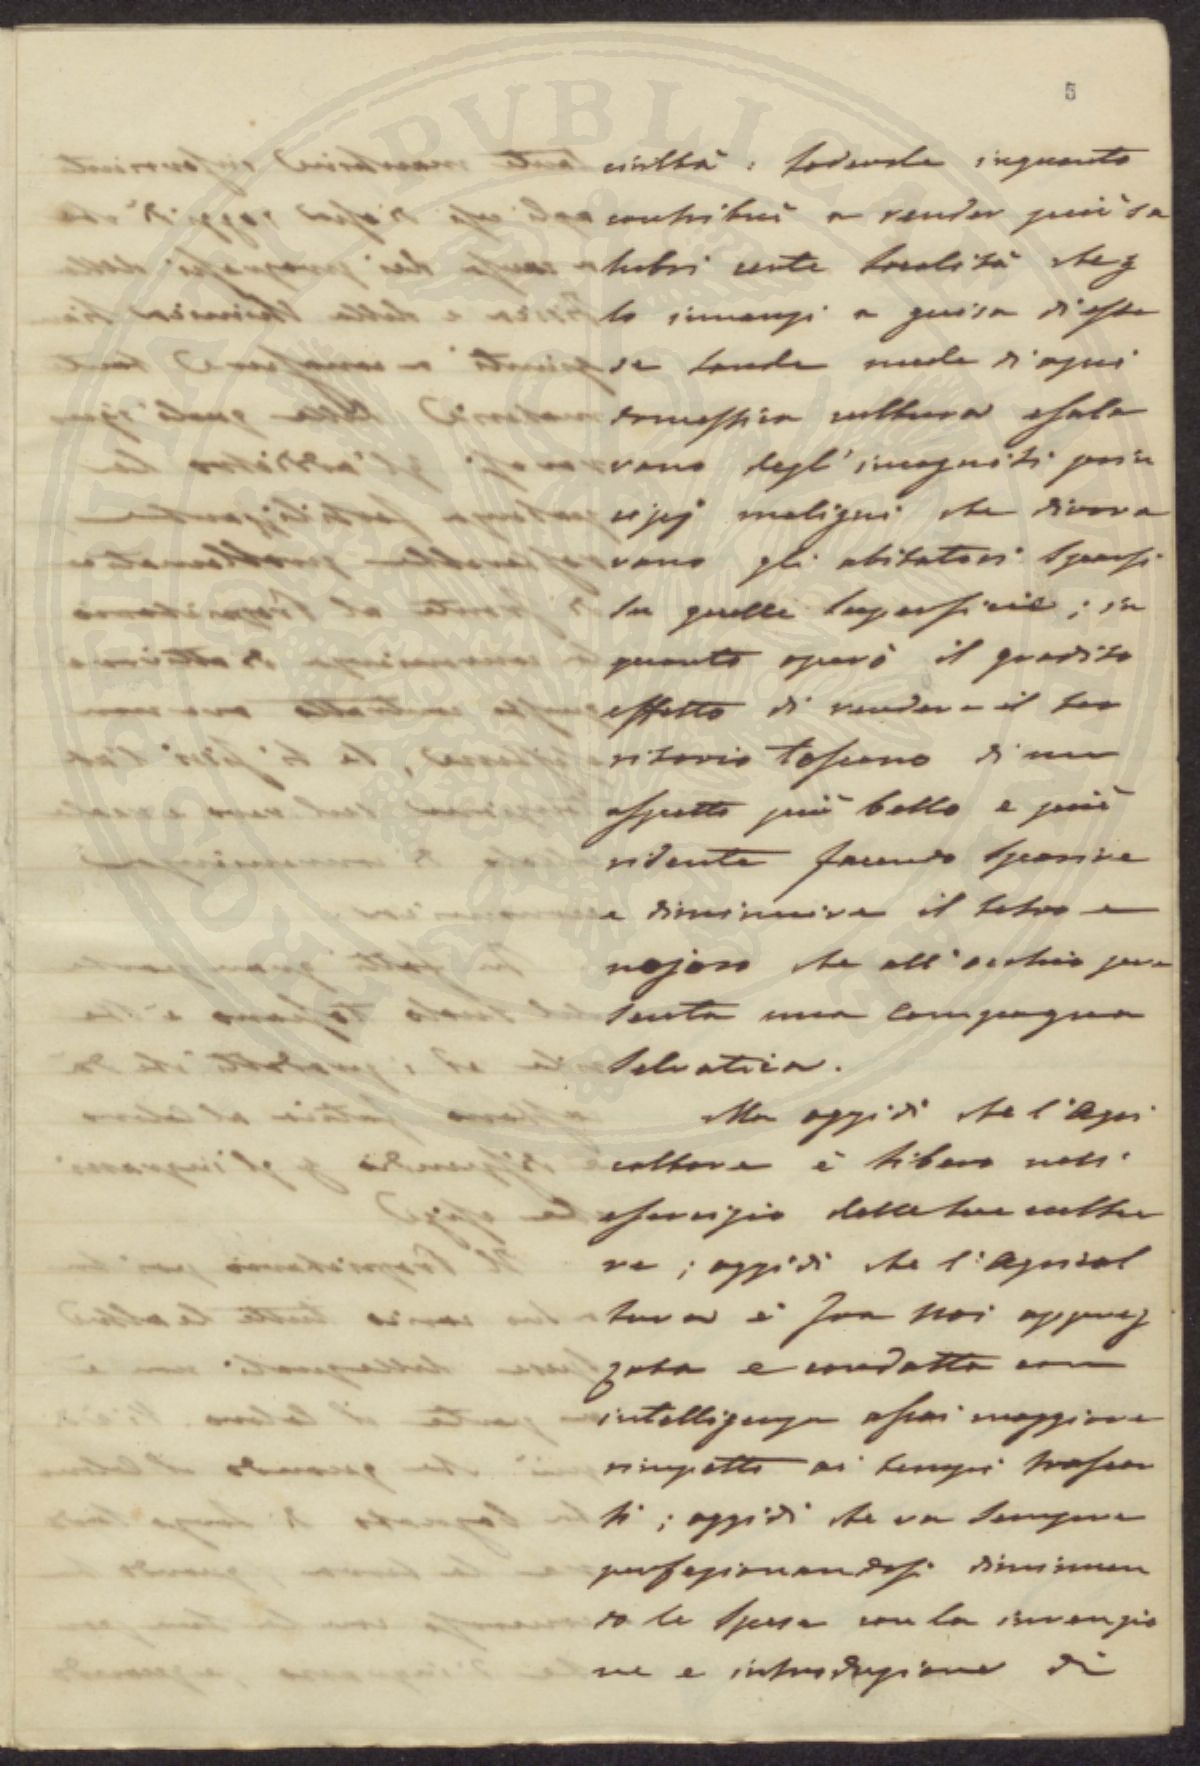 5
civiltà: lodevole inquanto
contribuì a render più sa
lubri certe località che p
lo innanzi a guisa di este
se lande nude di ogni
domestica cultura esala
vano degl'incogniti prin
cipj maligni che divora
vano gli abitatori sparsi
su quelle superficie; in
quanto operò il gradito
effetto di render il ter
ritorio Toscano di un
aspetto più bello e più
ridente facendo sparire
e diminuire il tetro e
nojoso che all'occhio pre
senta una Campagna
selvatica.
Ma oggidì che l'Agri
coltore è libero nell'
esercizio delle sue cultu
re; oggidì che l'Agricol
tura è fra noi apprez
zata e condotta con
intelligenza assai maggiore
rimpetto ai tempi trascor
si; oggidì che va sempre
perfezionandosi diminuen
do le spese con la invenzio
ne e introduzione di